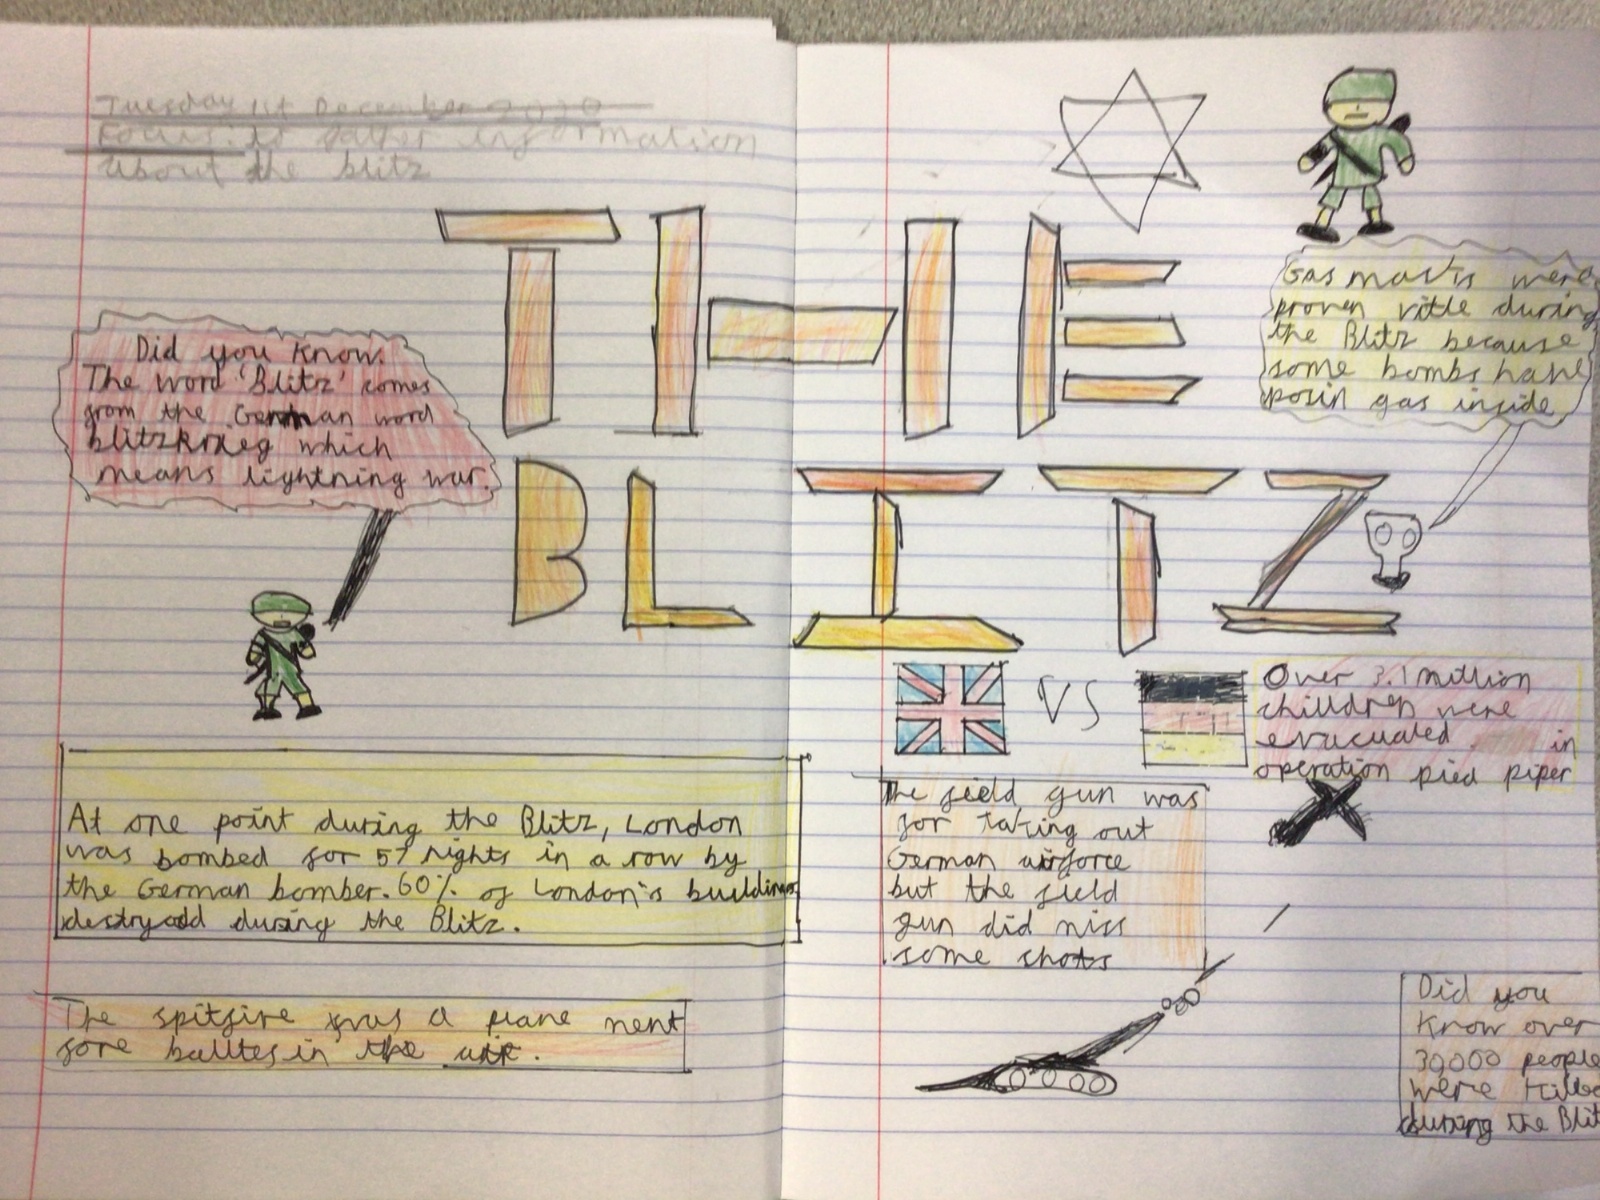 Tuesday 1st December 2020
Focus: to gather information
about the blitz
THE
BLITZ
Did you know.
The word 'Blitz' comes
from the German word
blitzkrieg which
means lightning war.
Gas masks were
proven vitle during
the Blitz because
some bombs have
posin gas inside
VS
Over 3.1 million
chilldren were
evacuated in
operation pied piper
At one point during the Blitz, London
was bombed for 57 nights in a row by
the German bomber. 60% of London's buildings
destryodd during the Blitz.
The field gun was
for taking out
German airforce
but the field
gun did miss
some shots
The spitfire was a plane ment
fore balltes in the air.
Did you
Know over
30,000 people
were Killed
during the Blit